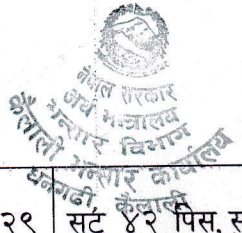 नेपाल सरकार
अर्थ मन्त्रालय
भन्सार विभाग
कैलाली भन्सार कार्यालय
धनगढी, कैलाली
२९ सट ४२ पिस, स